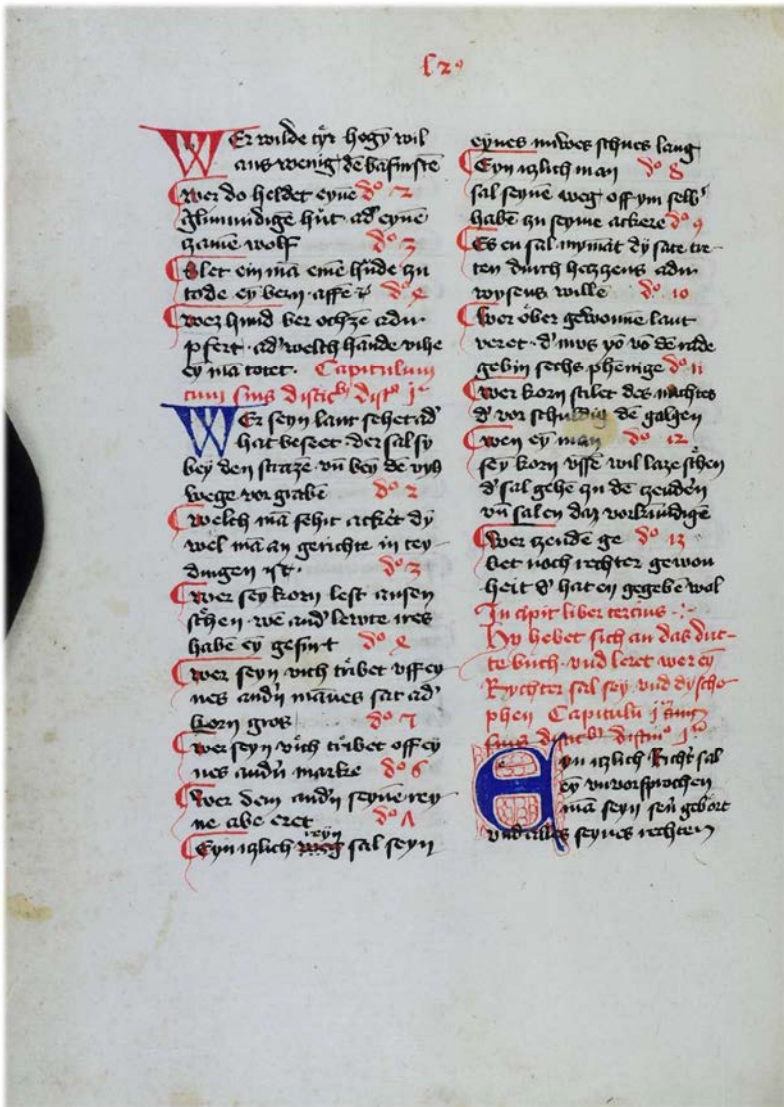 WEr wilde tÿr hegÿ wil
aus wenig dē bāfinstē
Wer do heldet eynē dº 2
zamē wolf dº 3
Slet ein mā emē hūde zu
tode eÿ bern affē dº 4
Wez hund ber ochzē adir
pfert · ad' welch hande vihe
eÿ mā totet · Capitulum
cum suis distic dist 1
WEr seyn lant sehet ad'
hat beseet · der sal sy
bey den strazē vn̄ bey dē
wege vor grabē dº 2
Welch mā sehit acker dy
wel mā an gerichte in tey
dingen ist · dº 3
Wer sey korn lest ausen
sten · wē and' lewte ires
habē eÿ gefurt dº 4
Wer seyn vich tribet vff ey
nes andn̄ mānes sat ad'
korn gros dº 5
Wer seyn vich tribet off ey
nes andn̄ marke dº 6
Wer dem andn̄ seynē rey
ne abe eret dº 7
Eyn izlich reyn sal seyn
eynes schues lang
Eyn izlich man dº 8
sal seynē weg off ym selb'
habē zu seyme ackere dº 9
Es en sal nymāt dy sate tre-
ten durch hezzens adir
wysens willē dº 10
Wer ober gewonnē lant
veret · d' mus yo vō dē rade
gebin sechs phēnige dº 11
Wer korn stilet des nachtes
d' vor schuldig dē galgen
Wen eÿ man dº 12
sey korn vssē wil lazē sten
d' sal gehē zu dē zendn̄
vn̄ sal en daz vorkundigē
Wer zendē ge dº 13
bet noch rechter gewon
heit d' hat en gegebē wol
Incipit liber tercius
Hy hebet sich an das dut-
te buch · vnd leret wer eÿ
Rychter sal sey vnd dy scho
phen Capitulu 1 cum
suis distic distinc 1
Eyn izlich Richt' sal
eÿ vnvorsprochen
mā seyn sen gebort
vnd alles seynes rechten